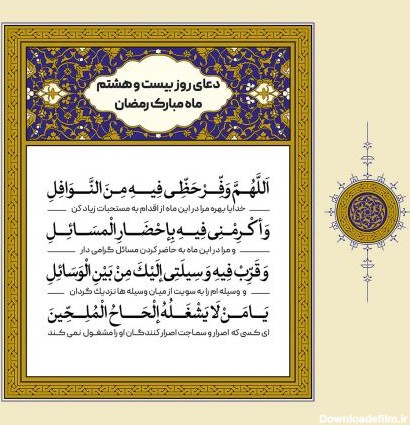 دعای روز بیست و هشتم
ماه مبارک رمضان
اَللّٰهُمَّ وَفِّرْ حَظِّی فِیهِ مِنَ النَّوَافِلِ
خدایا بهره مرا در این ماه از اقدام به مستحبات زیاد کن
وَأَکْرِمْنِی فِیهِ بِإِحْضَارِ الْمَسَائِلِ
و مرا در این ماه به حاضر کردن مسائل گرامی دار
وَقَرِّبْ فِیهِ وَسِیلَتِی إِلَیْكَ مِنْ بَیْنِ الْوَسَائِلِ
و وسیله ام را به سویت از میان وسیله ها نزدیک گردان
یَا مَنْ لَا یَشْغَلُهُ إِلْحَاحُ الْمُلِحِّینَ
ای کسی که اصرار و سماجت اصرار کنندگان او را مشغول نمی کند
Downloadefilm.ir